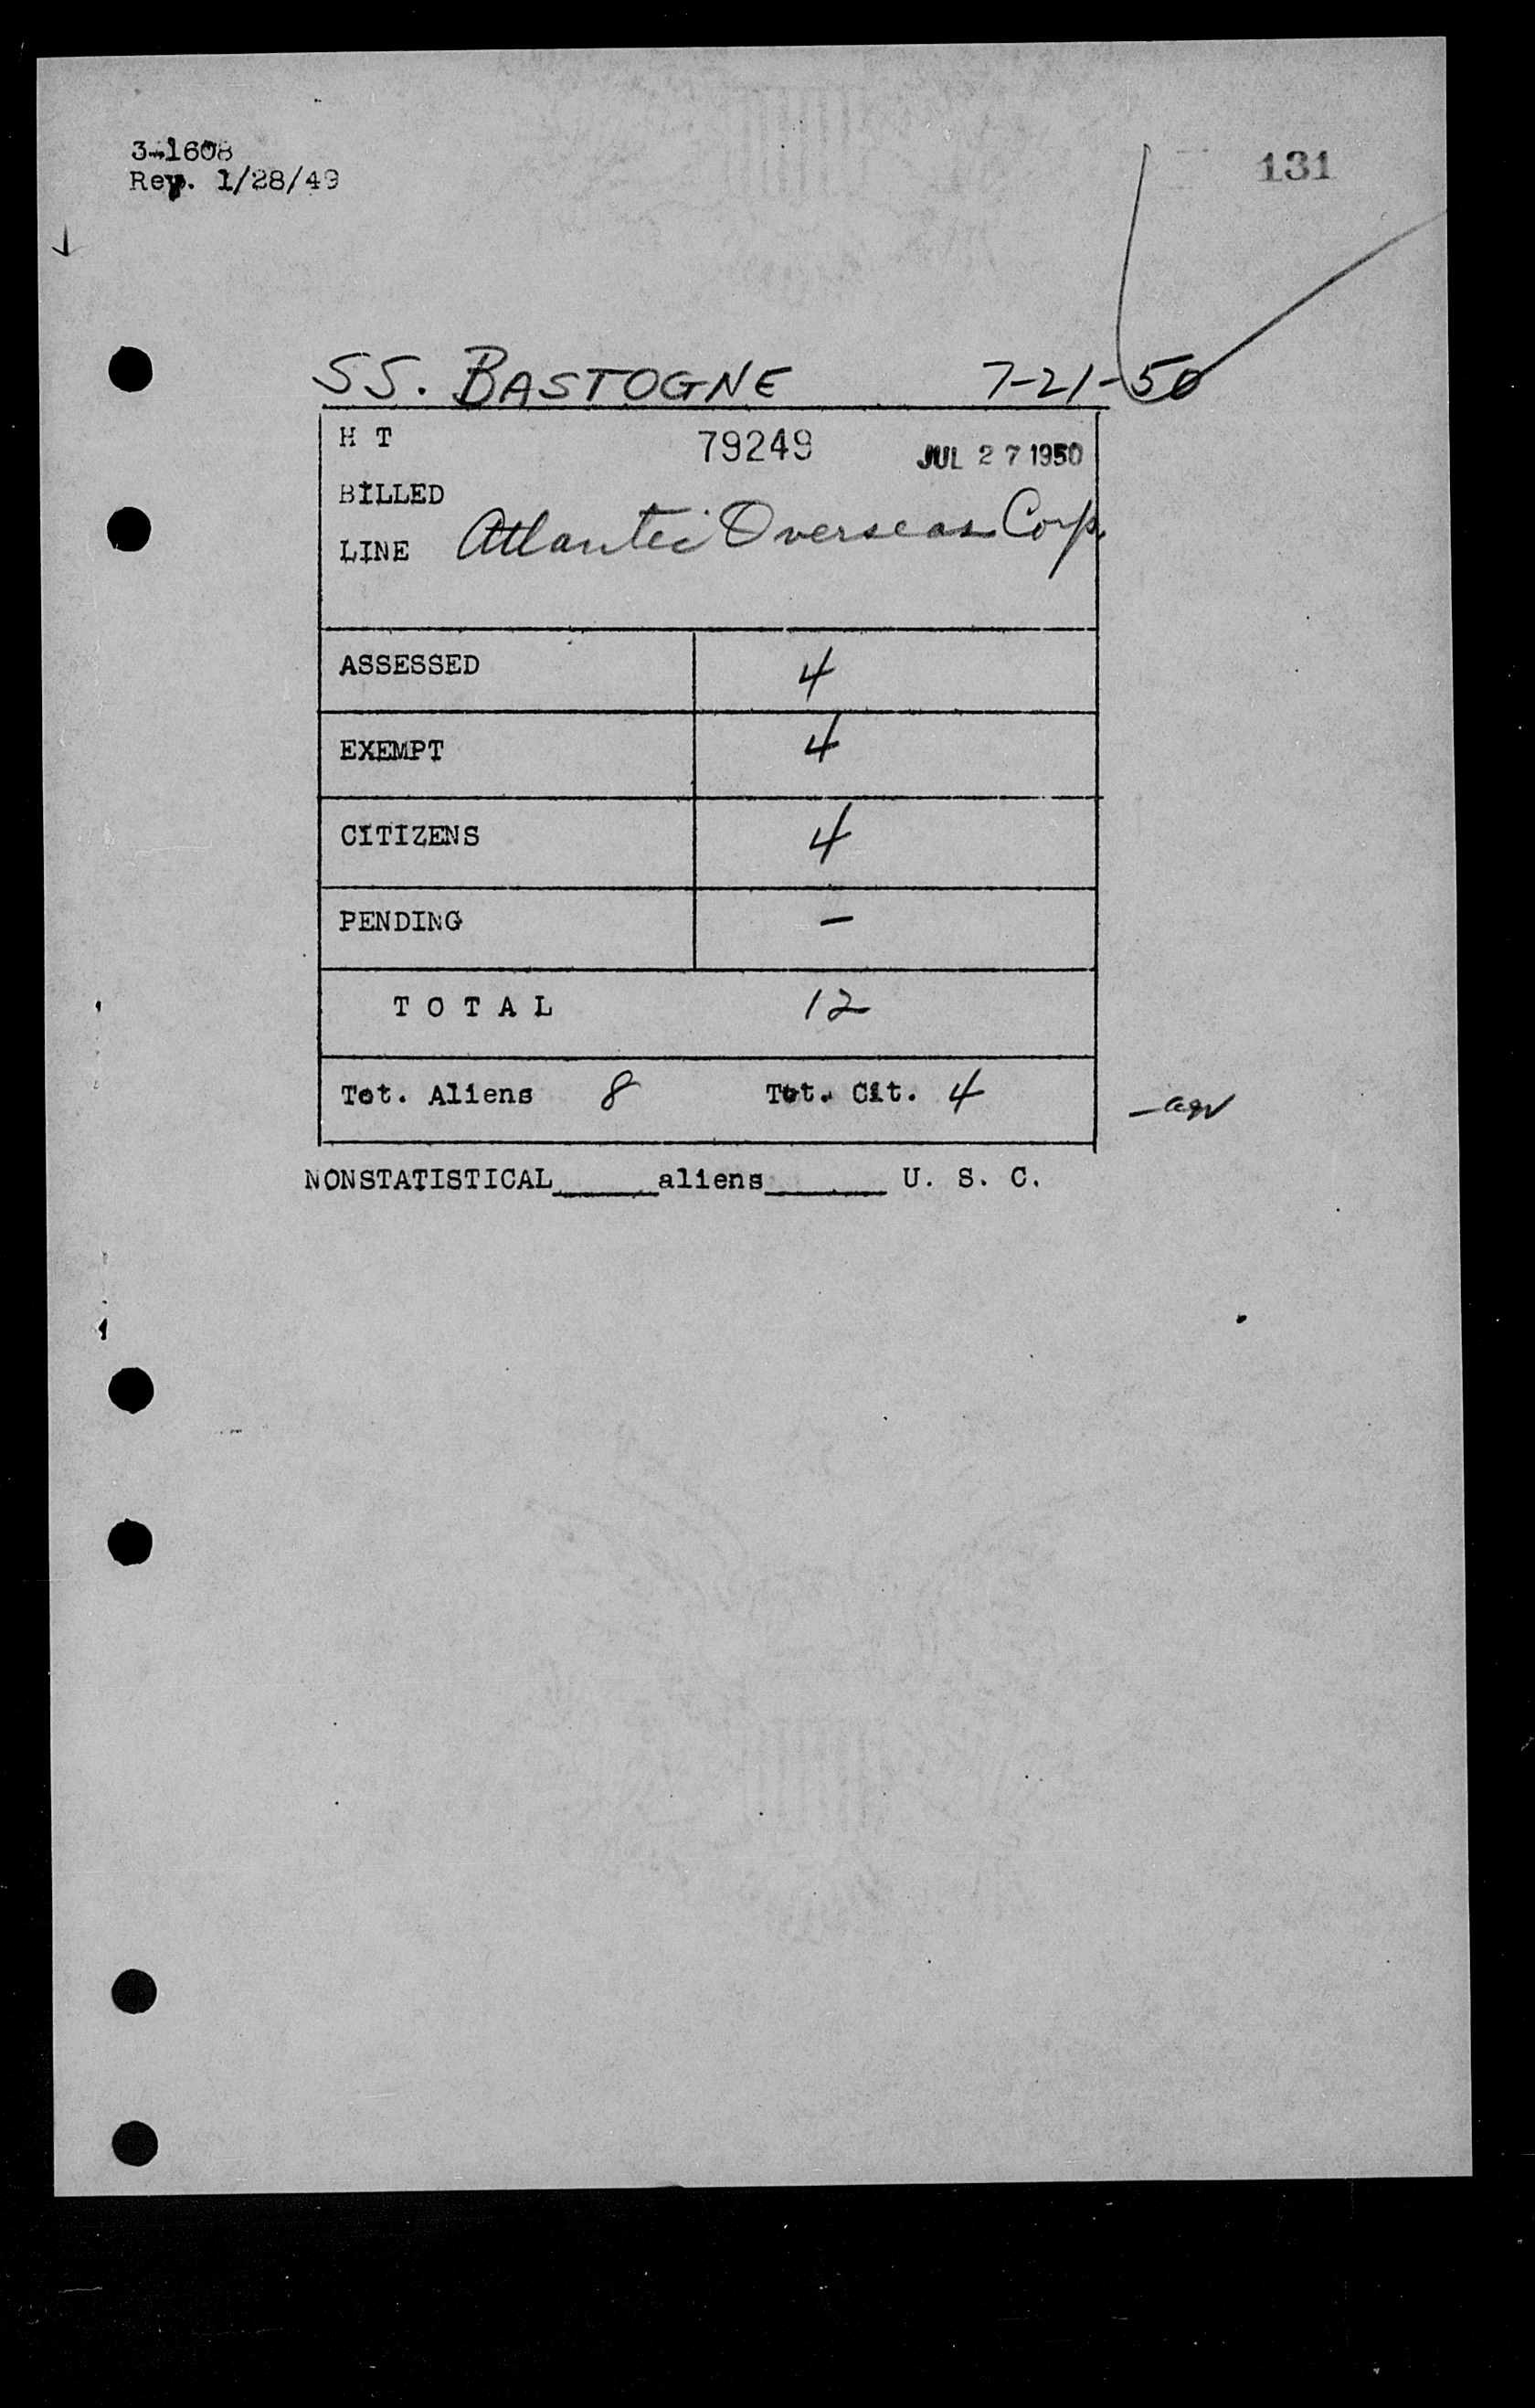 3-1608
Rev. 1/28/49
131
SS. BASTOGNE 7-21-50
H T 79249 JUL 27 1950
BILLED
LINE Atlantic Overseas Corp.
ASSESSED 4
EXEMPT 4
CITIZENS 4
PENDING -
T O T A L 12
Tot. Aliens 8 Tot. Cit. 4
NONSTATISTICAL______aliens______ U. S. C.